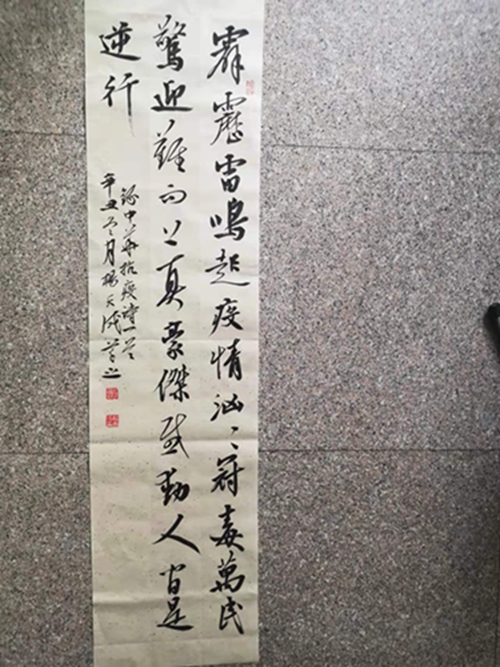 霹靂雷鳴起疫情汹〻冠毒萬民
驚迎難而上真豪傑感動人間是
逆行
錄中華抗疫詩一首
辛丑月楊天成書之